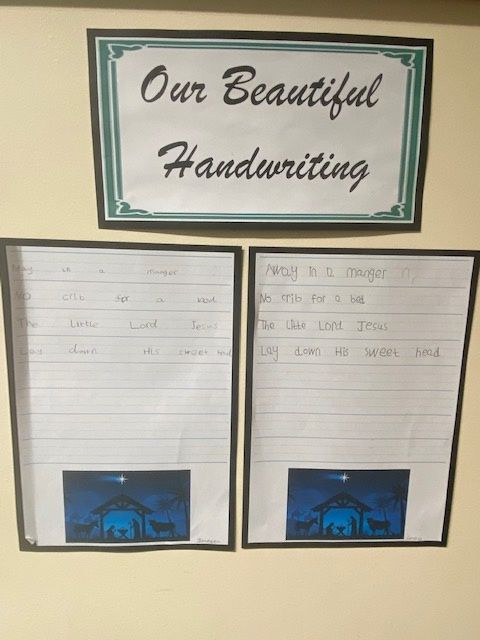 Our Beautiful
Handwriting
in a manger
No crib for a bed
The Little Lord Jesus
Lay down His sweet head
Away in a manger
No crib for a bed
The little Lord Jesus
Lay down His sweet head